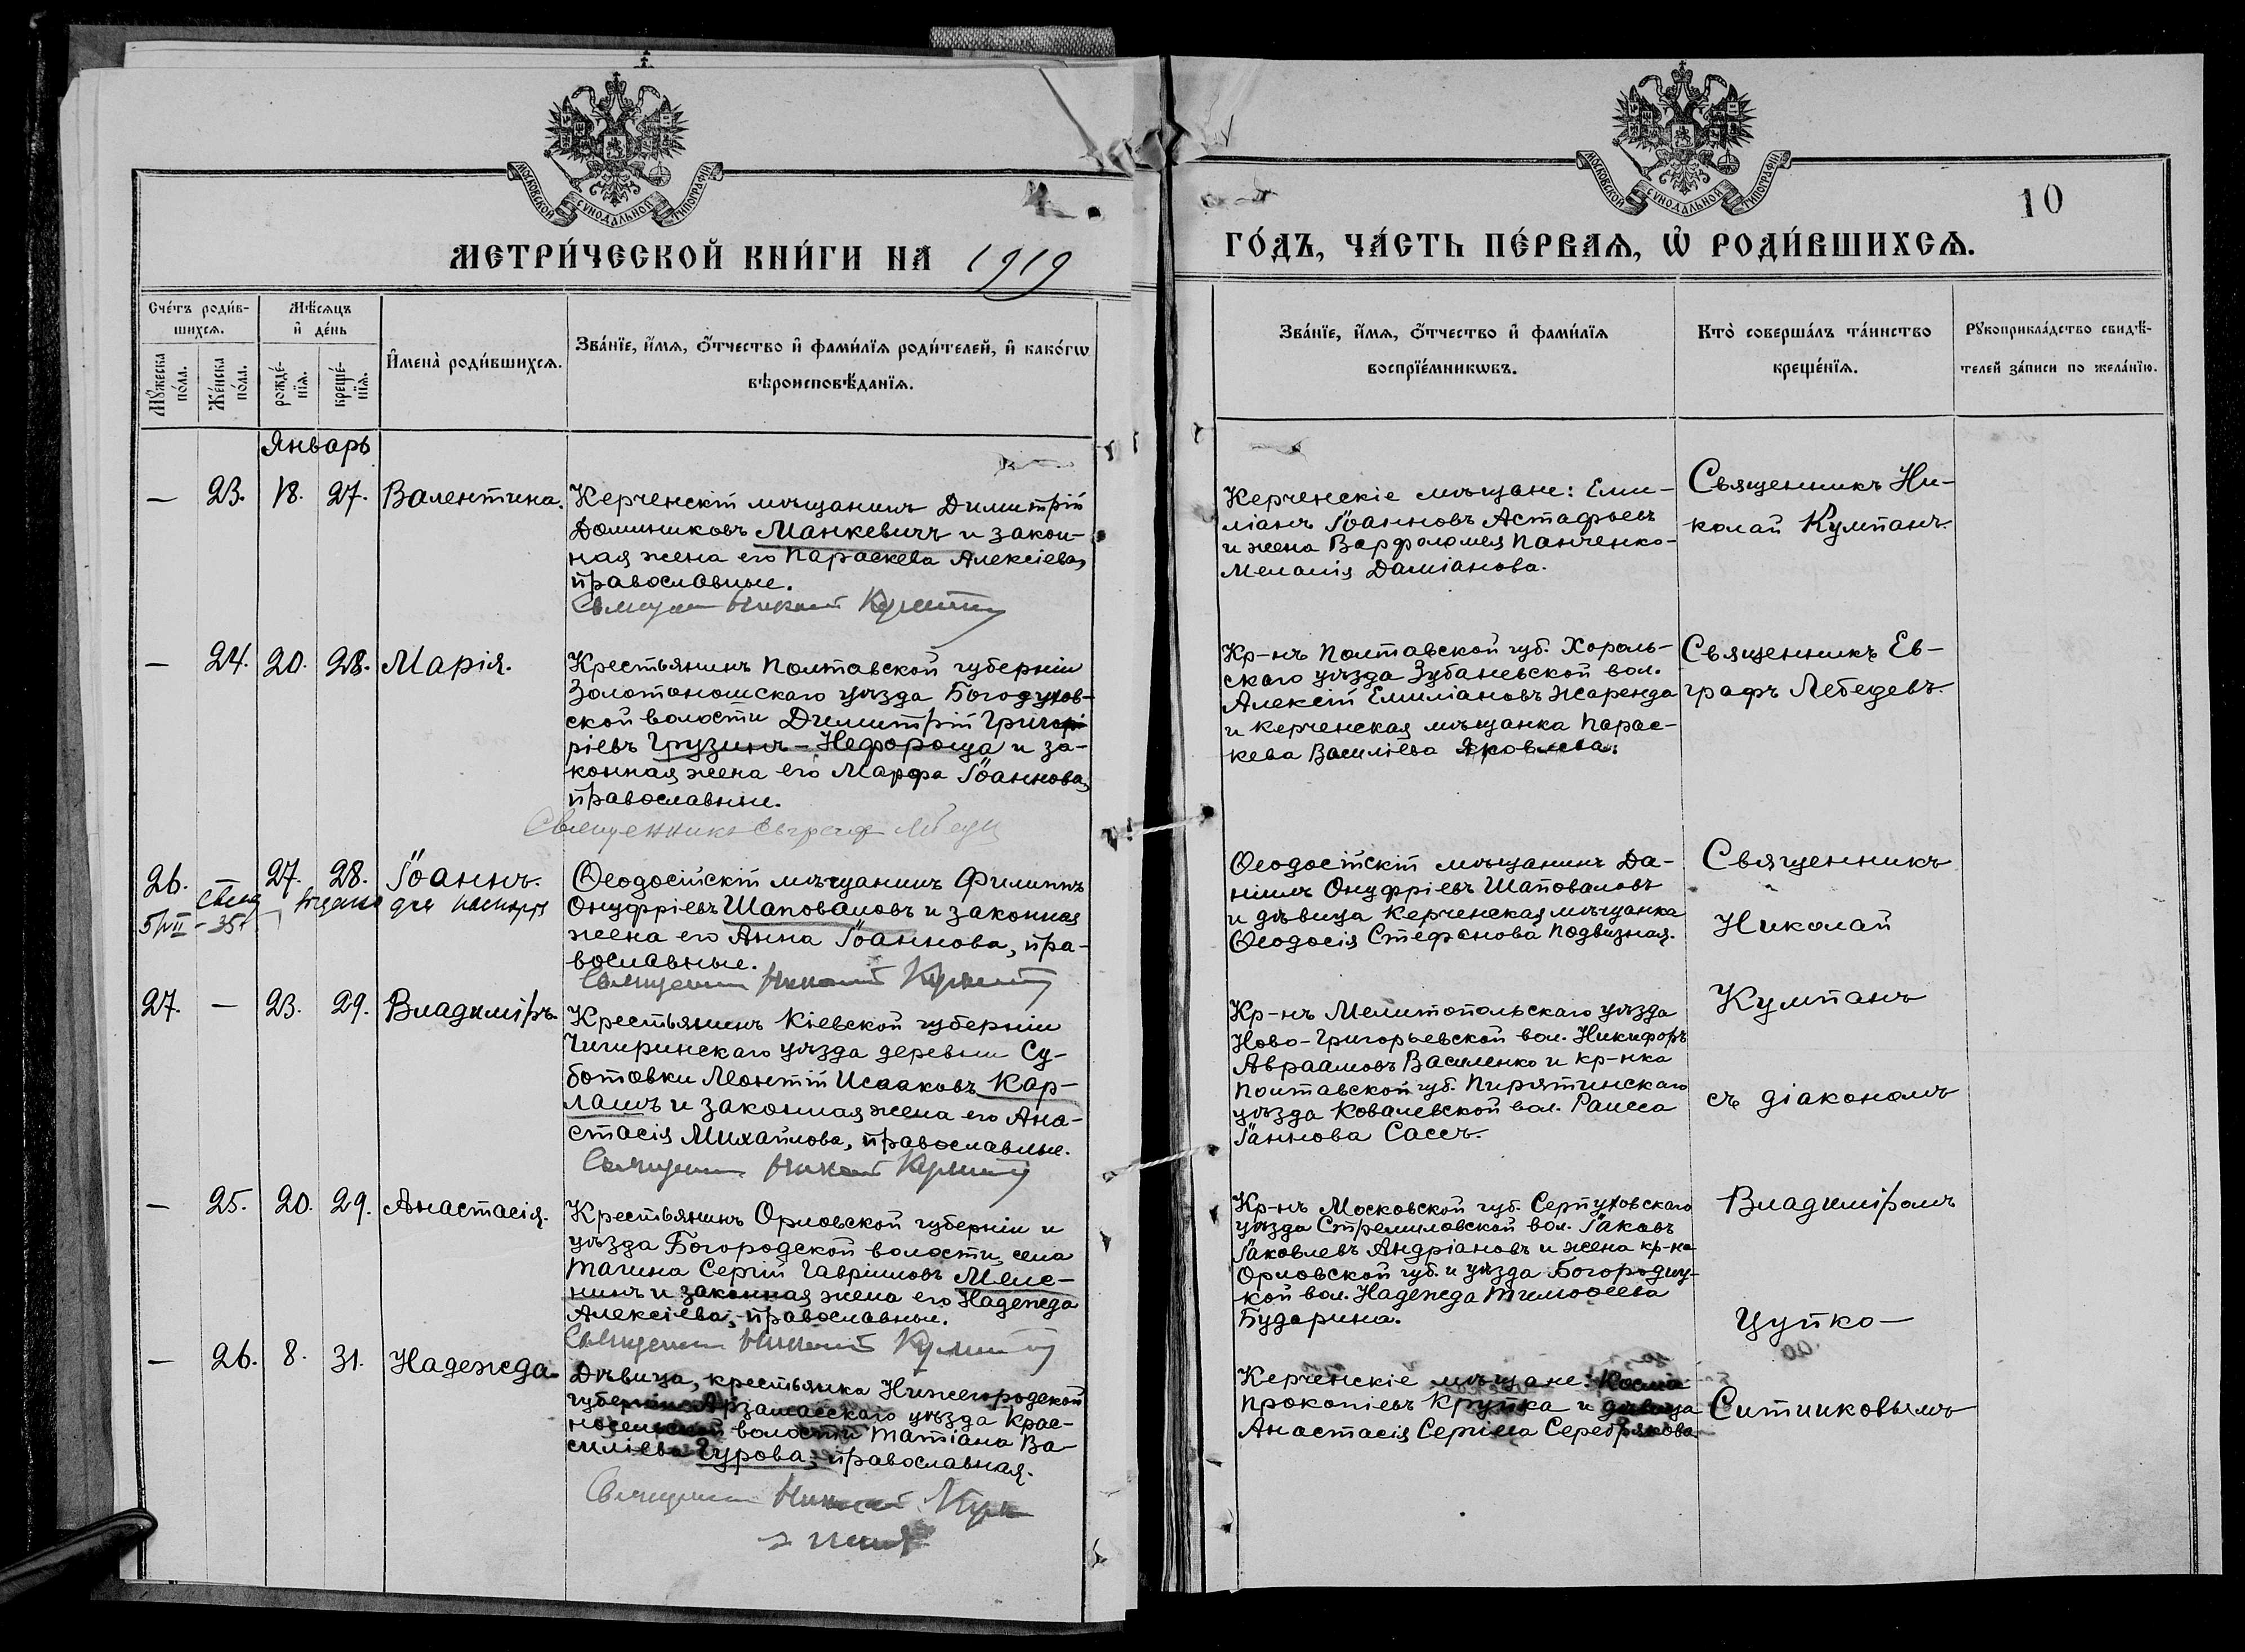 МОСКОВСКОЙ СѴНОДАЛЬНОЙ ТИПОГРАФІИ
МЕТРИ́ЧЕСКОЙ КНИ́ГИ НА 1919
Сче́тъ роди́в-
шихсѧ.
Мѹ́жеска
по́ла.
Же́нска
по́ла.
Мѣ́сѧцъ
и҆ де́нь
рожде́-
нїѧ.
креще́-
нїѧ.
И҆мена̀ роди́вшихсѧ.
Зва́нїе, и҆́мѧ, ѻ҆́тчество и҆ фами́лїѧ роди́телей, и҆ како́гѡ
вѣроисповѣ́данїѧ.
Январь
— 23. 18. 27. Валентина.
Керченскій мѣщанинъ Димитрій
Доминиковъ Манкевичъ и закон-
ная жена его Параскева Алексіева,
православные.
Николай
— 24. 20. 28. Марія.
Крестьянинъ Полтавской губерніи
Золотоношскаго уѣзда Богодухов-
ской волости Димитрій Григорі
ріевъ Грузинъ-Нефороща и за-
конная жена его Марфа Іоаннова,
православные.
Священникъ Евграф
26. — 27. 28. Іоаннъ.
для паспорта
5/VII - 35 г.
Ѳеодосійскій мѣщанинъ Филиппъ
Онуфріевъ Шаповаловъ и законная
жена его Анна Іоаннова, пра-
вославные.
Николай
27. — 23. 29. Владиміръ.
Крестьянинъ Кіевской губерніи
Чигиринскаго уѣзда деревни Су-
ботовки Леонтій Исааковъ Кар-
лашъ и законная жена его Ана-
стасія Михайлова, православные.
Николай
— 25. 20. 29. Анастасія.
Крестьянинъ Орловской губерніи и
уѣзда Богородской волости, села
Тагина Сергій Гавріиловъ
и законная жена его Надежда
Алексіева, православные.
Николай
— 26. 8. 31. Надежда.
Дѣвица, крестьянка Нижегородской
губерніи Арзамасскаго уѣзда Крас-
носельской волости Татіана Ва-
силіева Гурова, православная.
Николай
МОСКОВСКОЙ СѴНОДАЛЬНОЙ ТИПОГРАФІИ
10
ГО́ДЪ, ЧА́СТЬ ПЕ́РВАѦ, Ѡ҆ РОДИ́ВШИХСѦ.
Зва́нїе, и҆́мѧ, ѻ҆́тчество и҆ фами́лїѧ
воспрїе́мникѡвъ.
Кто̀ соверша́лъ та́инство
креще́нїѧ.
Рѹкоприкла́дство свидѣ́-
телей за́писи по жела́нїю.
Керченскіе мѣщане: Еми-
ліанъ Іоанновъ Астафьевъ
и жена Варфоломея Панченко-
Меланія Даміанова.
Священникъ Ни-
колай Кумпанъ
Кр-нъ Полтавской губ. Хороль-
скаго уѣзда Зубаневской вол.
Алексій Емиліановъ Жаренда
и керченская мѣщанка Парас-
кева Василіева Яковлева.
Священникъ Ев-
графъ Лебедевъ.
Ѳеодосійскій мѣщанинъ Да-
ніилъ Онуфріевъ Шаповаловъ
и дѣвица керченская мѣщанка
Ѳеодосія Стефанова Подвизная.
Священникъ
Николай
Кр-нъ Мелитопольскаго уѣзда
Ново-Григорьевской вол. Никифоръ
Авраамовъ Василенко и кр-нка
Полтавской губ. Пирятинскаго
уѣзда Ковалевской вол. Раиса
Іаннова Сассъ.
Кумпанъ
съ діакономъ
Кр-нъ Московской губ. Серпуховскаго
уѣзда Стремиловской вол. Іаковъ
Іаковлевъ Андріановъ и жена кр-на
Орловской губ. и уѣзда Богородиц-
кой вол. Надежда Тимоѳеева
Бударина.
Владиміромъ
Цупко-
Керченскіе мѣщане: Косма
Прокопіевъ Крупка и дѣвица
Анастасія Сергіева Серебрякова
Ситниковымъ